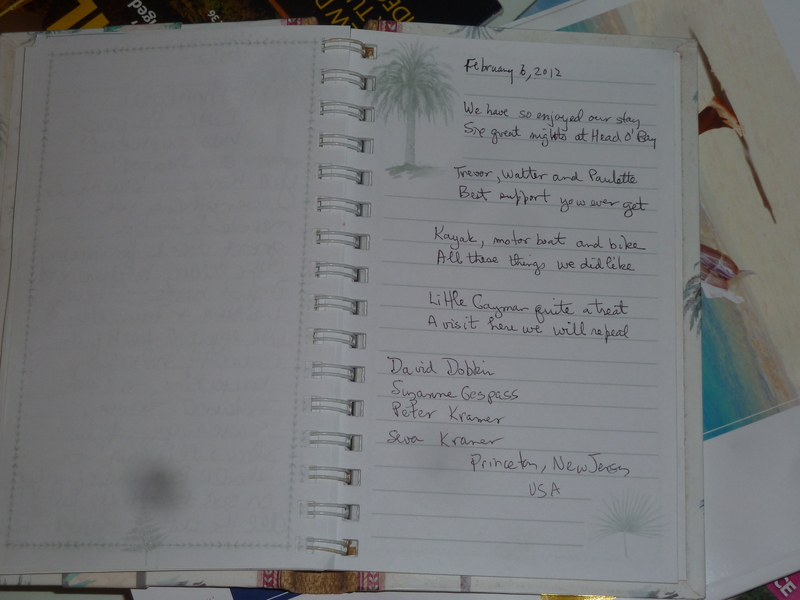 February 6, 2012
We have so enjoyed our stay
Six great nights at Head O' Bay
Trevor, Walter and Paulette
Best support you ever get
Kayak, motor boat and bike
All these things we did like
Little Cayman quite a treat
A visit here we will repeat
David Dobkin
Suzanne Gespass
Peter Kramer
Seva Kramer
Princeton, New Jersey
USA
aged
36
CE